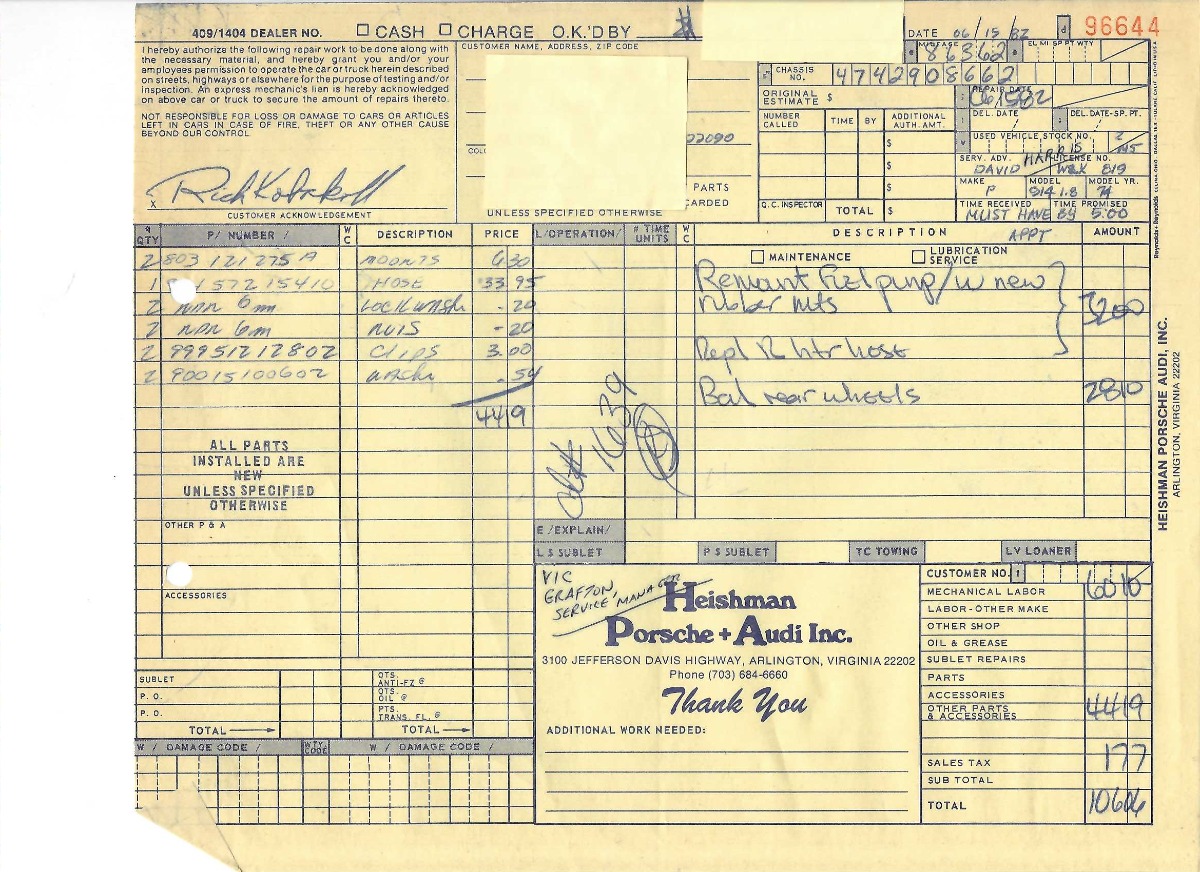 409/1404 DEALER NO. CASH CHARGE O.K.'D BY
DATE 06/15/82 d 96644
I hereby authorize the following repair work to be done along with
the necessary material, and hereby grant you and/or your
employees permission to operate the car or truck herein described
on streets, highways or elsewhere for the purpose of testing and/or
inspection. An express mechanic's lien is hereby acknowledged
on above car or truck to secure the amount of repairs thereto.
NOT RESPONSIBLE FOR LOSS OR DAMAGE TO CARS OR ARTICLES
LEFT IN CARS IN CASE OF FIRE, THEFT OR ANY OTHER CAUSE
BEYOND OUR CONTROL
X
CUSTOMER ACKNOWLEDGEMENT
CUSTOMER NAME, ADDRESS, ZIP CODE
22090
PARTS
UNLESS SPECIFIED OTHERWISE
MILEAGE 86362
CHASSIS NO. 4742908662
ORIGINAL ESTIMATE $
REPAIR DATE 061582
NUMBER CALLED TIME BY ADDITIONAL AUTH. AMT.
DEL. DATE DEL. DATE-SP. PT.
USED VEHICLE STOCK NO.
SERV. ADV. DAVID HARRIS LICENSE NO. 819
MAKE P MODEL 914 1.8 MODEL YR. 74
Q.C. INSPECTOR TOTAL $
TIME RECEIVED TIME PROMISED
MUST HAVE BY 5:00
QTY P/ NUMBER / W C DESCRIPTION PRICE L/OPERATION/ # TIME UNITS W C DESCRIPTION APPT AMOUNT
MAINTENANCE LUBRICATION SERVICE
2 803 121 275 A MOUNTS 6.30
1 572 154 10 HOSE 33.95
2 NPN 6m LOCKWASH .20
2 NPN 6m NUTS .20
2 999 512 128 02 CLIPS 3.00
2 900 151 006 02 WASH .54
4419
Remount Fuel pump/w new
rubber mts 3200
Repl R htr hose
Bal rear wheels 2810
1639
ALL PARTS
INSTALLED ARE
NEW
UNLESS SPECIFIED
OTHERWISE
OTHER P & A
ACCESSORIES
E /EXPLAIN/
L S SUBLET P S SUBLET TC TOWING LV LOANER
VIC
GRAFTON,
SERVICE MANAGER
Heishman
Porsche + Audi Inc.
3100 JEFFERSON DAVIS HIGHWAY, ARLINGTON, VIRGINIA 22202
Phone (703) 684-6660
Thank You
ADDITIONAL WORK NEEDED:
CUSTOMER NO.
MECHANICAL LABOR 6010
LABOR-OTHER MAKE
OTHER SHOP
OIL & GREASE
SUBLET REPAIRS
PARTS
ACCESSORIES
OTHER PARTS & ACCESSORIES 4419
SALES TAX 177
SUB TOTAL
TOTAL 10606
SUBLET QTS. ANTI-FZ @
P. O. QTS. OIL @
P. O. PTS. TRANS. FL. @
TOTAL TOTAL
W / DAMAGE CODE / WTY. CODE W / DAMAGE CODE /
HEISHMAN PORSCHE AUDI, INC.
ARLINGTON, VIRGINIA 22202